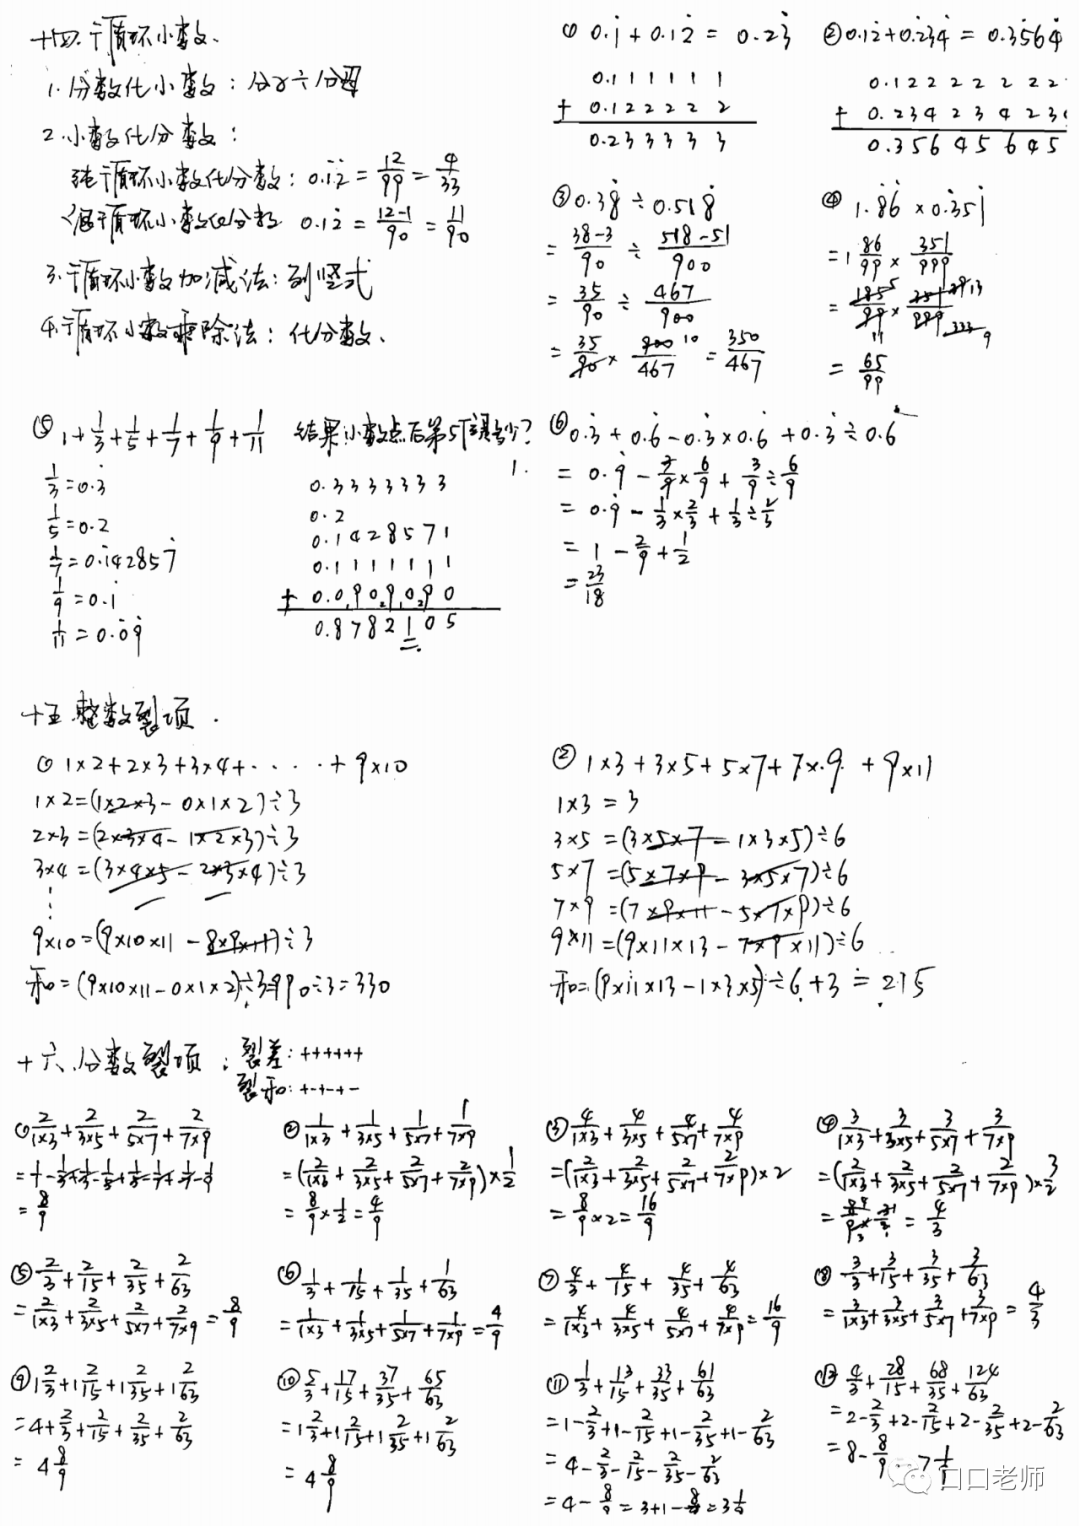 十四.循环小数、
1.分数化小数:分子÷分母
2.小数化分数:
纯循环小数化分数:0.1̇2̇=12/99=4/33
混循环小数化分数 0.12̇=(12-1)/90=11/90
3.循环小数加减法:列竖式
4.循环小数乘除法:化分数、
① 0.1̇+0.12̇=0.23̇
0.111111
+0.122222
0.233333
②0.12̇+0.2̇34̇=0.35̇64̇
0.12222222
+0.23423423
0.35645645
③0.38̇÷0.518̇
=(38-3)/90÷(518-51)/900
=35/90÷467/900
=35/90×900/467 10=350/467
④ 1.8̇6̇×0.3̇51̇
=1 86/99×351/999
=185 5/99 11×351 39 13/999 333 9
=65/99
⑤ 1+1/3+1/5+1/7+1/9+1/11 结果小数点后第5位是多少?
1/3=0.3̇
1/5=0.2
1/7=0.1̇42857̇
1/9=0.1̇
1/11=0.0̇9̇
1.
0.3333333
0.2
0.1428571
0.1111111
+0.0909090
0.8782105
⑥0.3̇+0.6̇-0.3̇×0.6̇+0.3̇÷0.6̇
=0.9̇-3/9×6/9+3/9÷6/9
=0.9̇-1/3×2/3+1/3÷2/3
=1-2/9+1/2
=23/18
十五.整数裂项.
① 1×2+2×3+3×4+·····+9×10
1×2=(1×2×3-0×1×2)÷3
2×3=(2×3×4-1×2×3)÷3
3×4=(3×4×5-2×3×4)÷3
⋮
9×10=(9×10×11-8×9×10)÷3
和=(9×10×11-0×1×2)÷3=990÷3=330
② 1×3+3×5+5×7+7×9+9×11
1×3=3
3×5=(3×5×7-1×3×5)÷6
5×7=(5×7×9-3×5×7)÷6
7×9=(7×9×11-5×7×9)÷6
9×11=(9×11×13-7×9×11)÷6
和=(9×11×13-1×3×5)÷6+3=215
十六.分数裂项:裂差:++++++
裂和:+-+-+-
①2/1×3+2/3×5+2/5×7+2/7×9
=1/1-1/3+1/3-1/5+1/5-1/7+1/7-1/9
=8/9
②1/1×3+1/3×5+1/5×7+1/7×9
=(2/1×3+2/3×5+2/5×7+2/7×9)×1/2
=8/9×1/2=4/9
③4/1×3+4/3×5+4/5×7+4/7×9
=(2/1×3+2/3×5+2/5×7+2/7×9)×2
=8/9×2=16/9
④3/1×3+3/3×5+3/5×7+3/7×9
=(2/1×3+2/3×5+2/5×7+2/7×9)×3/2
=8/9×3/2=4/3
⑤2/3+2/15+2/35+2/63
=2/1×3+2/3×5+2/5×7+2/7×9=8/9
⑥1/3+1/15+1/35+1/63
=1/1×3+1/3×5+1/5×7+1/7×9=4/9
⑦4/3+4/15+4/35+4/63
=4/1×3+4/3×5+4/5×7+4/7×9=16/9
⑧3/3+3/15+3/35+3/63
=3/1×3+3/3×5+3/5×7+3/7×9=4/3
⑨1 2/3+1 2/15+1 2/35+1 2/63
=4+2/3+2/15+2/35+2/63
=4 8/9
⑩5/3+17/15+37/35+65/63
=1 2/3+1 2/15+1 2/35+1 2/63
=4 8/9
⑪1/3+13/15+33/35+61/63
=1-2/3+1-2/15+1-2/35+1-2/63
=4-2/3-2/15-2/35-2/63
=4-8/9=3+1-8/9=3 1/9
⑫4/3+28/15+68/35+124/63
=2-2/3+2-2/15+2-2/35+2-2/63
=8-8/9=7 1/9
口口老师